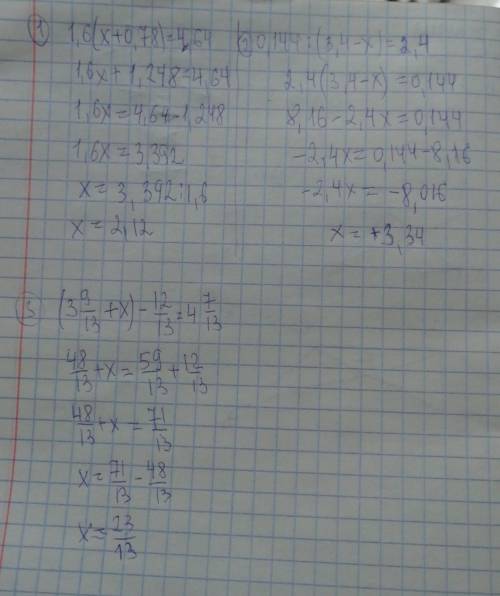 ① 1,6(x+0,78)=4,64
1,6x+1,248=4,64
1,6x=4,64-1,248
1,6x=3,392
x=3,392:1,6
x=2,12
② 0,144:(3,4-x)=2,4
2,4(3,4-x)=0,144
8,16-2,4x=0,144
-2,4x=0,144-8,16
-2,4x=-8,016
x=+3,34
③ (3 9/13 +x)- 12/13 =4 7/13
48/13 +x= 59/13 + 12/13
48/13 +x= 71/13
x= 71/13 - 48/13
x= 23/13